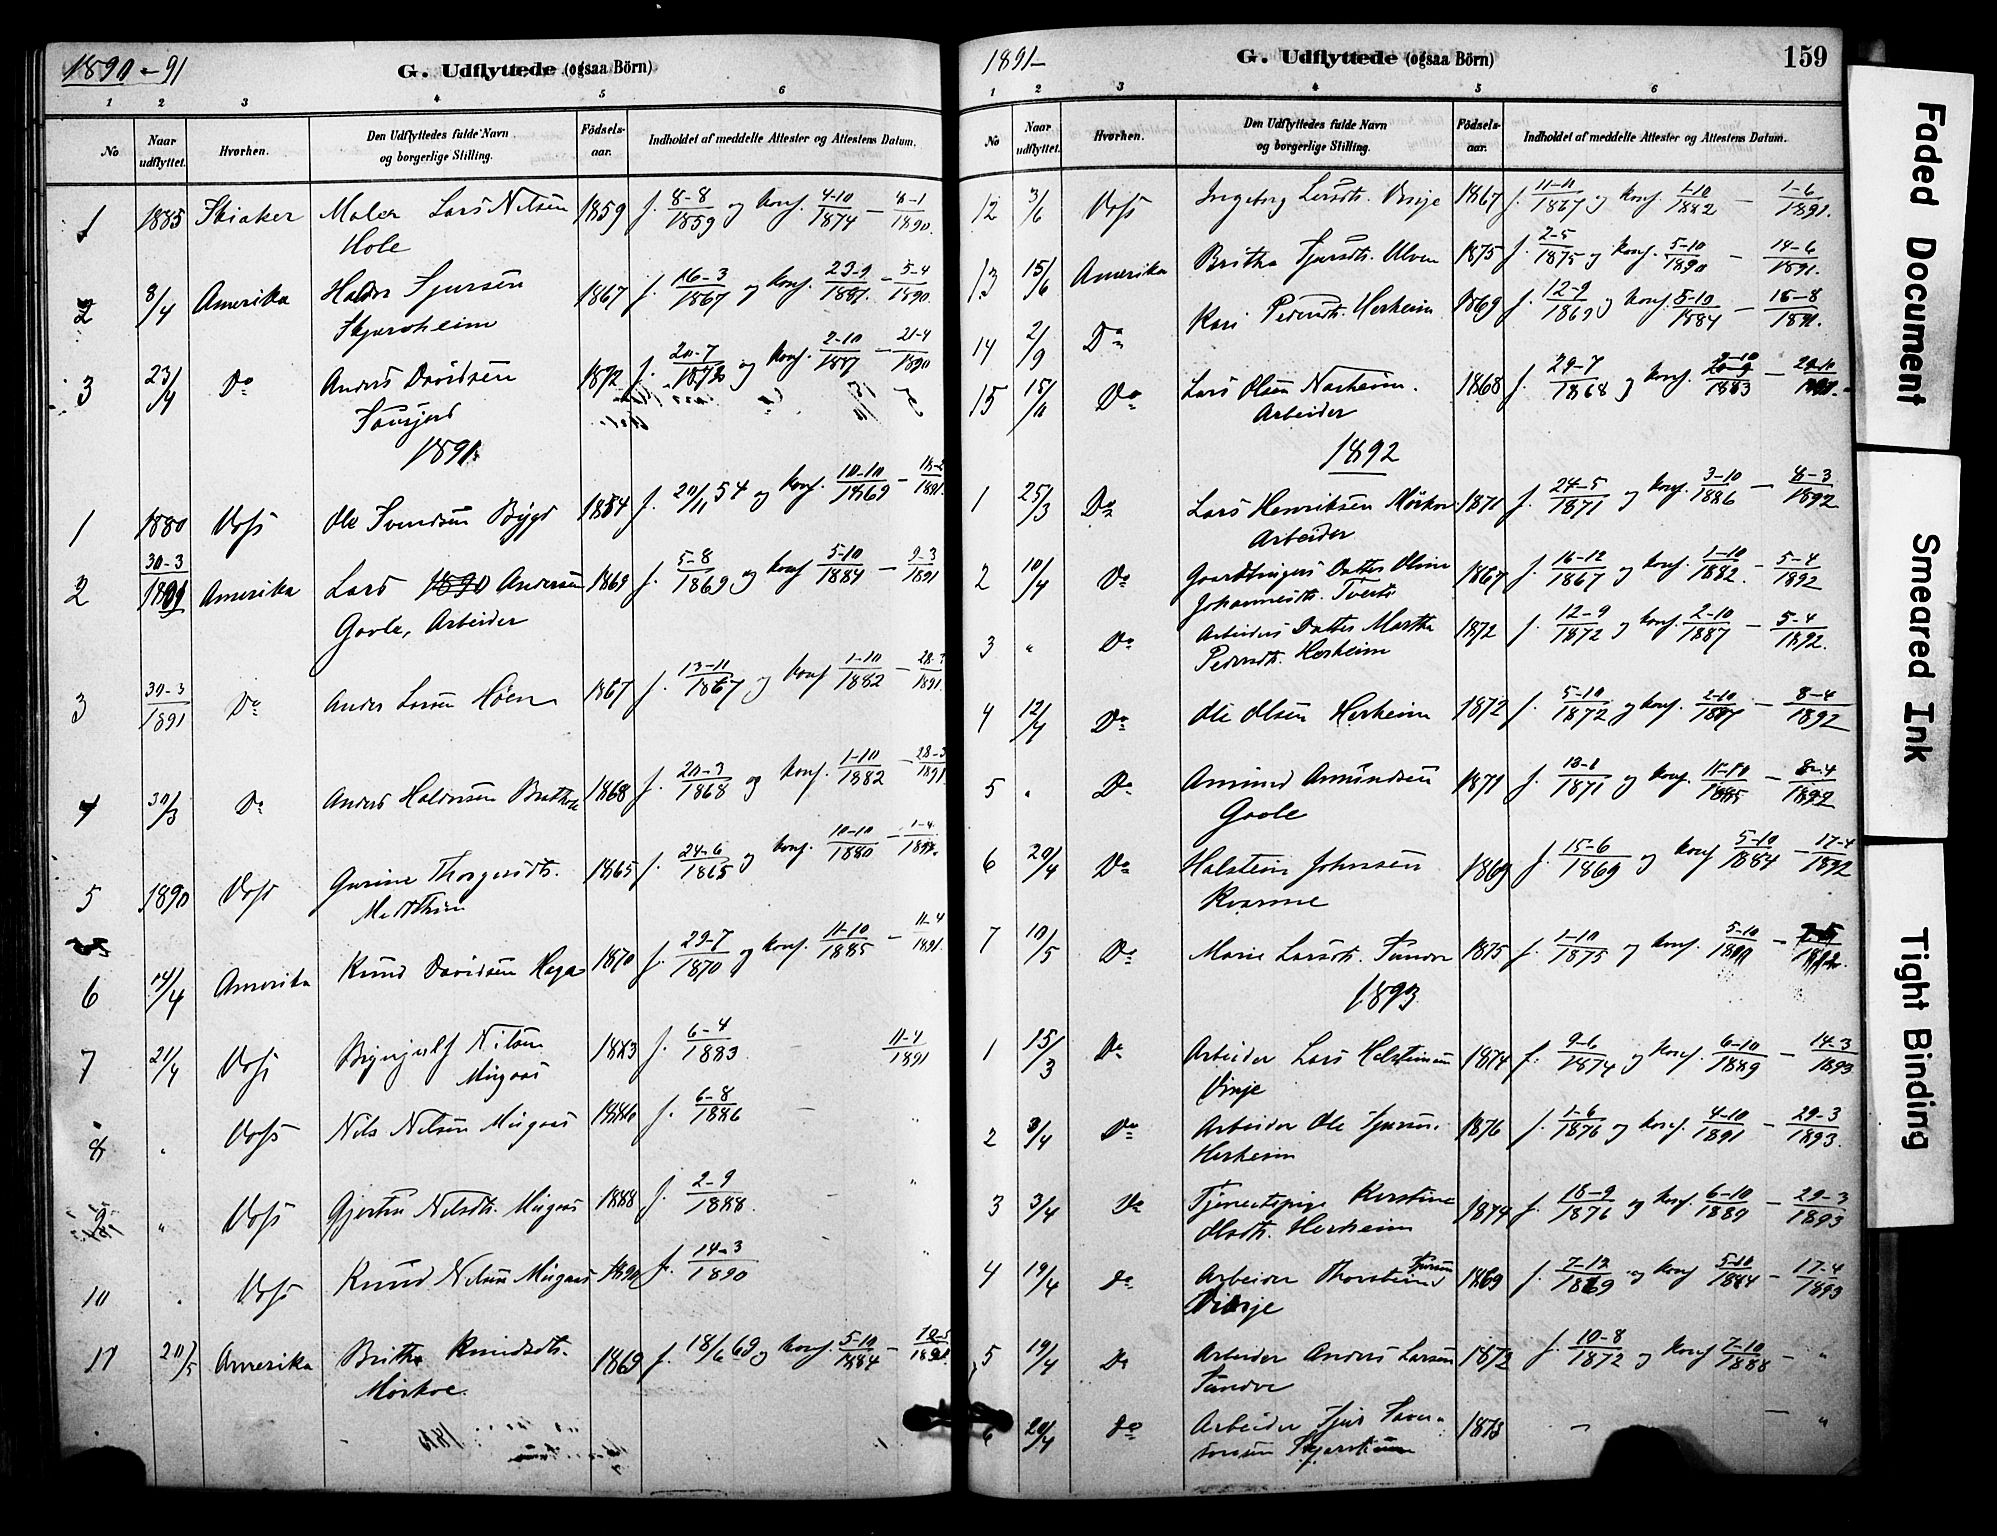 1890-91
G. Udflyttede (ogsaa Börn)
1 2 3 4 5 6
No Naar udflyttet. Hvorhen. Den Udflyttedes fulde Navn og borgerlige Stilling. Födsels-aar. Indholdet af meddelte Attester og Attestens Datum.
1 1885 Skiaker Maler Lars Nilsen 1859 f. 8-8/1859 og konf. 4-10/1874 - 8-1/1890.
Hole
2 8/4 Amerika Halder Sjursen 1867 f. 16-3/1867 og konf. 23-9/1881. - 5-4/1890.
Skjærsheim
3 23/4 Do Anders Davidsen 1872 f. 20-7/1872 og konf. 2-10/1887 - 21-4/1890
1891.
1 1880 Voss Ole Svendsen Bygd 1854 f. 20/11 54 og konf. 10-10/1869 - 1891.
2 30-3/1891 Amerika Lars Andersen 1869 f. 5-8/1869 og konf 5-10/1884 - 9-3/1891
Gavle, Arbeider
3 30-3/1891 Do Anders Larsen Høen 1867 f. 13-11/1867 og konf 1-10/1882 - 28-3/1891.
4 30/3 Do Anders Haldorsen 1868 f. 20-3/1868 og konf. 1-10/1882 - 28-3/1891
5 1890 Voss 1865 f. 24-6/1865 og konf. 10-10/1880 - 1-4/1891.
6 14/4 Amerika Knud Davidsen Haga 1870 f. 29-7/1870 og konf. 11-10/1885 - 11-4/1891.
7 21/4 Voss Brynjulf Nilsen 1883 f. 6-4/1883. 11-4/1891
Mugaas
8 " Voss Nils Nilsen Mugaas 1886 f. 6-8/1886 -
9 " Voss Gjertru Nilsdtr. Mugaas 1888 f. 2-9/1888. "
10 " Voss Knud Nilsen Mugaas 1890 f. 14-3/1890 "
11 20/5 Amerika Britha Knudsdtr. 1869 f. 18/6 69 og konf. 5-10/1884 - 1891.
Mørkve.
1891-
G. Udflyttede (ogsaa Börn)
159
1 2 3 4 5 6
No Naar udflyttet. Hvorhen. Den Udflyttedes fulde Navn og borgerlige Stilling. Födsels-aar. Indholdet af meddelte Attester og Attestens Datum.
12 3/6 Voss Ingeborg Larsdtr. Vinje 1867 f. 11-11/1867 og konf. 1-10/1882 - 1-6/1891.
13 15/6 Amerika Britha Sjursdtr. Ulven 1875 f. 2-5/1875 og konf. 5-10/1890 - 14-6/1891.
14 2/9 Do Kari Pedersdtr. Herheim 1869 f. 12-9/1869 og konf. 5-10/1884 - 15-8/1891.
15 15/11 Do Lars Olsen Nærheim. 1868 f. 29-7/1868 og konf. 1883 - 1891.
Arbeider
1892
1 25/3 Do Lars Henriksen Mørkve 1871 f. 24-5/1871 og konf. 3-10/1886 - 8-3/1892
Arbeider
2 10/4 Do Gaardbrugers Datter Oline 1867 f. 16-12/1867 og konf. 1-10/1882. - 5-4/1892
Johannesdtr. Tverte
3 " Do Arbeiders Datter Martha 1872 f. 12-9/1872 og konf. 2-10/1887 - 5-4/1892.
Pedersdtr. Herheim
4 12/4 Do Ole Olsen Herheim 1872 f. 5-10/1872 og konf. 2-10/1887 - 8-4/1892
5 " Do Amund Amundsen 1871 f. 1871 og konf. 11-10/1885 - 8-4/1892
Gavle
6 20/4 Do Holstein Johnsen 1869 f. 15-6/1869 og konf 5-10/1884 - 17-4/1892
Kvarme
7 10/5 Do Marie Larsdtr. Tundre 1875 f. 1-10/1875 og konf. 5-10/1890 - 1892.
1893
1 15/3 Do Arbeider Lars Holsteinsen 1874 f. 9-6/1874 og konf. 6-10/1889 - 14-3/1893
Vinje
2 3/4 Do Arbeider Ole Sjursen. 1876 f. 1-6/1876 og konf. 4-10/1891 - 29-3/1893.
Herheim
3 3/4 Do Tjenestepige Kirstine 1874 f. 18-9/1876 og konf. 6-10/1889 - 29-3/1893
Olsdtr. Herheim
4 19/4 Do Arbeider Thorstein Sjursen 1869 f. 7-12/1869 og konf 5-10/1884 - 17-4/1893
Vinje
5 19/4 Do Arbeider Anders Larsen 1872 f. 10-8/1872 og konf 7-10/1888 - "
Tundre
6 20/4 Do Arbeider Sjur 1873 - - "
Faded Document
Smeared Ink
Tight Binding